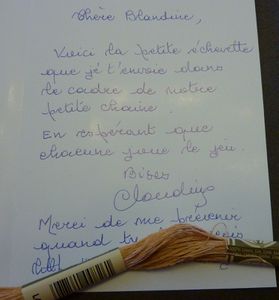 Chère Blandine,
Voici la petite échevette
que je t'envoie dans
le cadre de notre
petite chaine.
En espérant que
chacune joue le jeu.
Bises
Merci de me prévenir
quand tu